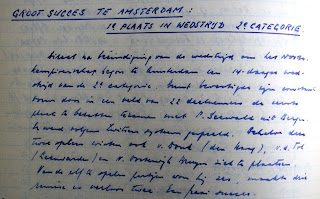 GROOT SUCCES TE AMSTERDAM:
1e PLAATS IN WEDSTRIJD 2e CATEGORIE.
Direct na beëindiging van de wedstrijd om het
kampioenschap begon te Amsterdam een 14-daagse wed-
strijd van de 2e categorie. Henk bevestigde zijn
vorm door in een veld van 22 deelnemers de eerste
plaats te bezetten samen met P. uit
Er werd volgens Zwitsers systeem gespeeld. Behalve deze
twee spelers wisten ook v. (den Haag), v.d. Tol
(Leeuwarden) en v. Oosterwijk Bruyn zich te plaatsen.
Van de elf te spelen partijen won hij zes, maakte drie
remise en verloor twee. Een fraai succes.